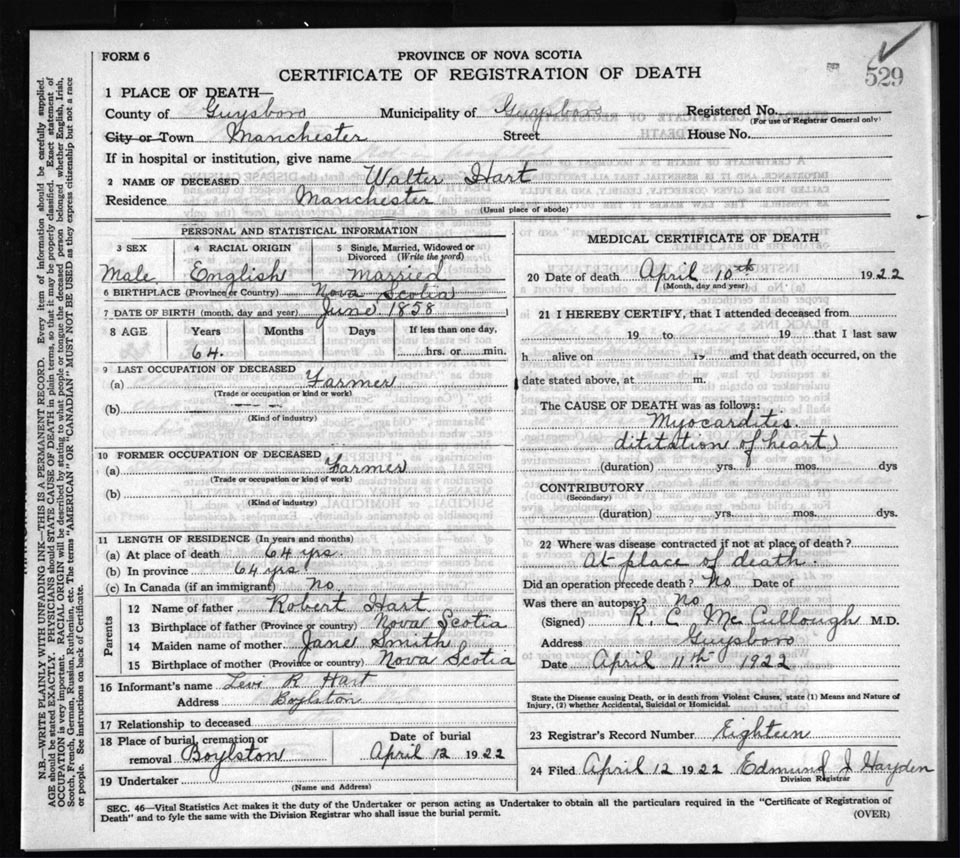 FORM 6
PROVINCE OF NOVA SCOTIA
CERTIFICATE OF REGISTRATION OF DEATH
529
1 PLACE OF DEATH—
County of Guysboro Municipality of Guysboro Registered No.
(For use of Registrar General only)
City or Town Manchester Street House No.
If in hospital or institution, give name
2 NAME OF DECEASED Walter Hart
Residence Manchester
(Usual place of abode)
PERSONAL AND STATISTICAL INFORMATION
3 SEX 4 RACIAL ORIGIN 5 Single, Married, Widowed or Divorced (Write the word)
Male English Married
6 BIRTHPLACE (Province or Country) Nova Scotia
7 DATE OF BIRTH (month, day and year) June 1858
8 AGE Years Months Days If less than one day,
64. hrs. or min.
9 LAST OCCUPATION OF DECEASED
(a) Farmer
(Trade or occupation or kind or work)
(b)
(Kind of industry)
10 FORMER OCCUPATION OF DECEASED
(a) Farmer
(Trade or occupation or kind of work)
(b)
(Kind of industry)
11 LENGTH OF RESIDENCE (In years and months)
(a) At place of death 64 yrs.
(b) In province 64 yrs
(c) In Canada (if an immigrant) No
Parents
12 Name of father Robert Hart
13 Birthplace of father (Province or country) Nova Scotia
14 Maiden name of mother Jane Smith
15 Birthplace of mother (Province or country) Nova Scotia
16 Informant's name Levi R Hart
Address Boylston
17 Relationship to deceased
18 Place of burial, cremation or removal Boylston Date of burial April 12 1922
19 Undertaker
(Name and Address)
MEDICAL CERTIFICATE OF DEATH
20 Date of death April 10th 1922
(Month, day and year)
21 I HEREBY CERTIFY, that I attended deceased from
19 to 19 that I last saw
h alive on 19 and that death occurred, on the
date stated above, at m.
The CAUSE OF DEATH was as follows:
Myocardites.
dititation of heart
(duration) yrs. mos. dys
CONTRIBUTORY
(Secondary)
(duration) yrs. mos. dys.
22 Where was disease contracted if not at place of death?
At place of death.
Did an operation precede death? No Date of
Was there an autopsy? No
(Signed) R. C McCullough M.D.
Address Guysboro
Date April 11th 1922
State the Disease causing Death, or in death from Violent Causes, state (1) Means and Nature of
Injury, (2) whether Accidental, Suicidal or Homicidal.
23 Registrar's Record Number Eighteen
24 Filed April 12 1922 Edmund J Hayden
Division Registrar
SEC. 46—Vital Statistics Act makes it the duty of the Undertaker or person acting as Undertaker to obtain all the particulars required in the "Certificate of Registration of
Death" and to fyle the same with the Division Registrar who shall issue the burial permit.
(OVER)
N.B.—WRITE PLAINLY WITH UNFADING INK—THIS IS A PERMANENT RECORD. Every item of information should be carefully supplied.
AGE should be stated EXACTLY. PHYSICIANS should STATE CAUSE OF DEATH in plain terms, so that it may be properly classified. Exact statement of
OCCUPATION is very important. RACIAL ORIGIN will be described by stating to what people or tongue the deceased person belonged whether English, Irish,
Scotch, French, German, Russian, Ruthenian, etc. The terms "AMERICAN" OR "CANADIAN" MUST NOT BE USED as they express citizenship but not a race
or people. See instructions on back of Certificate.